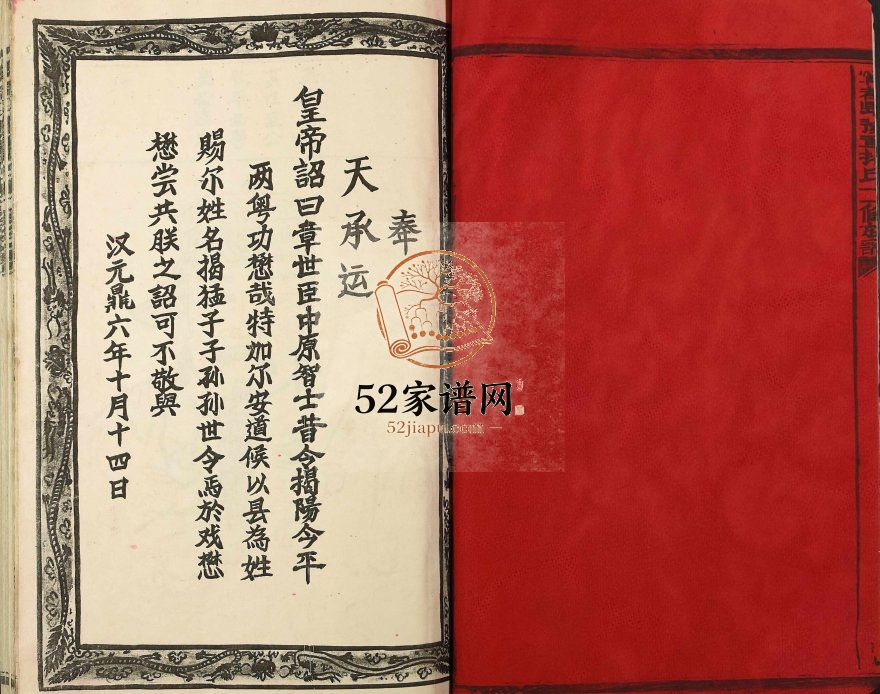 奉
天承运
皇帝詔曰章世臣中原智士昔令揭陽今平
两粤功懋哉特加尔安道候以县為姓
赐尔姓名揭猛子子孙孙世令焉於戏懋
懋尝共朕之詔可不敬與
汉元鼎六年十月十四日
52家谱网
52jiapu.com